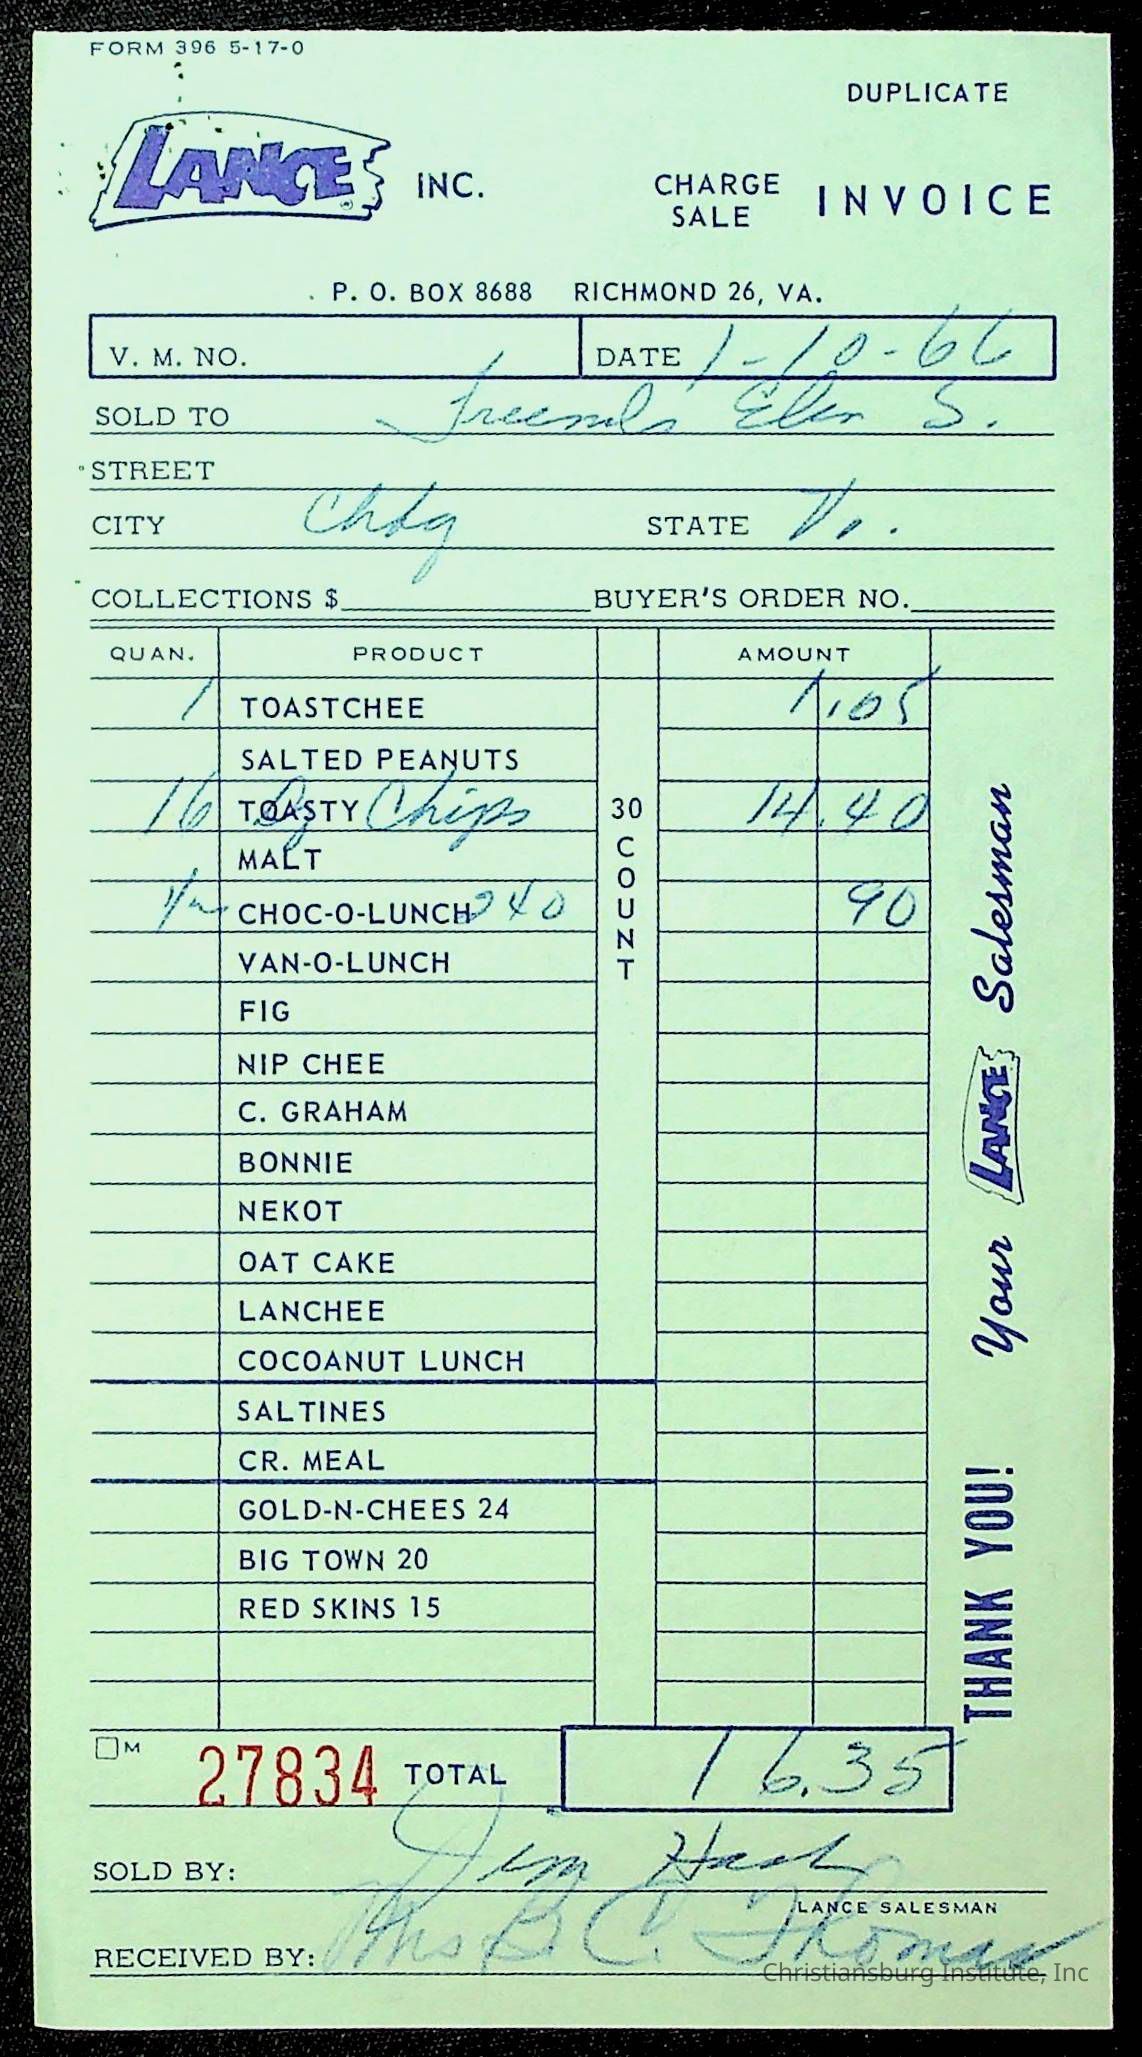 FORM 396 5-17-0
DUPLICATE
LANCE® INC.
CHARGE SALE
INVOICE
P. O. BOX 8688 RICHMOND 26, VA.
V. M. NO.
DATE 1-10-66
SOLD TO Elem S.
STREET
CITY Chbg STATE Va.
COLLECTIONS $ BUYER'S ORDER NO.
QUAN. PRODUCT AMOUNT
1 TOASTCHEE 1.05
SALTED PEANUTS
16 TOASTY Dz Chips 14.40
MALT
1/2 CHOC-O-LUNCH 240 90
VAN-O-LUNCH
FIG
NIP CHEE
C. GRAHAM
BONNIE
NEKOT
OAT CAKE
LANCHEE
COCOANUT LUNCH
30 COUNT
SALTINES
CR. MEAL
GOLD-N-CHEES 24
BIG TOWN 20
RED SKINS 15
Your LANCE Salesman
THANK YOU!
M 27834 TOTAL 16.35
SOLD BY: Jim Hash
LANCE SALESMAN
RECEIVED BY: Mrs B. C. Thomas
Christiansburg Institute, Inc